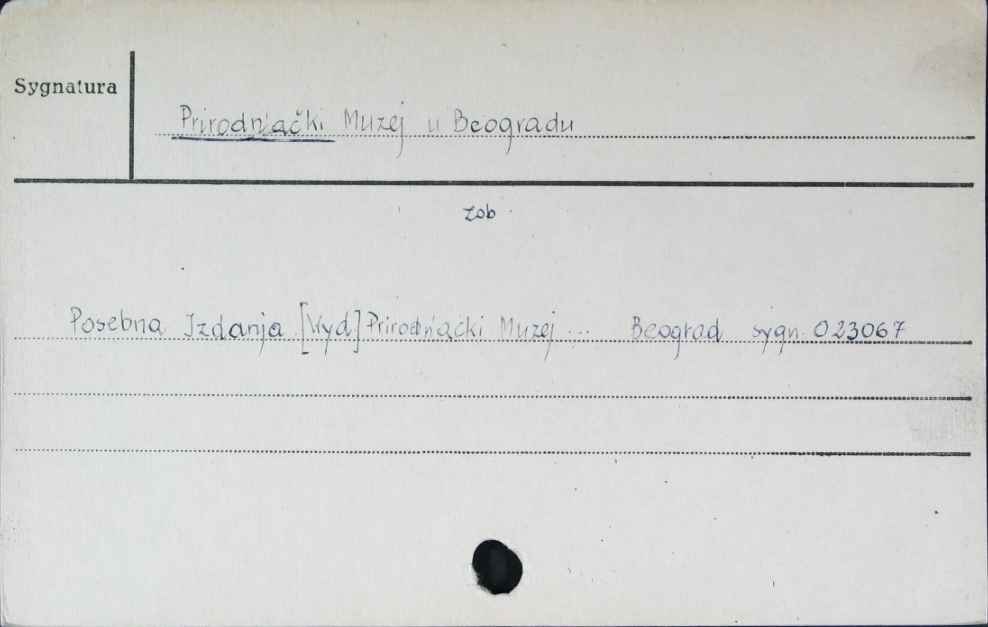 Sygnatura
Prirodńački Muzej u Beogradu
zob
Posebna Izdanja [Wyd] Prirodńački Muzej ... Beograd sygn. 023067